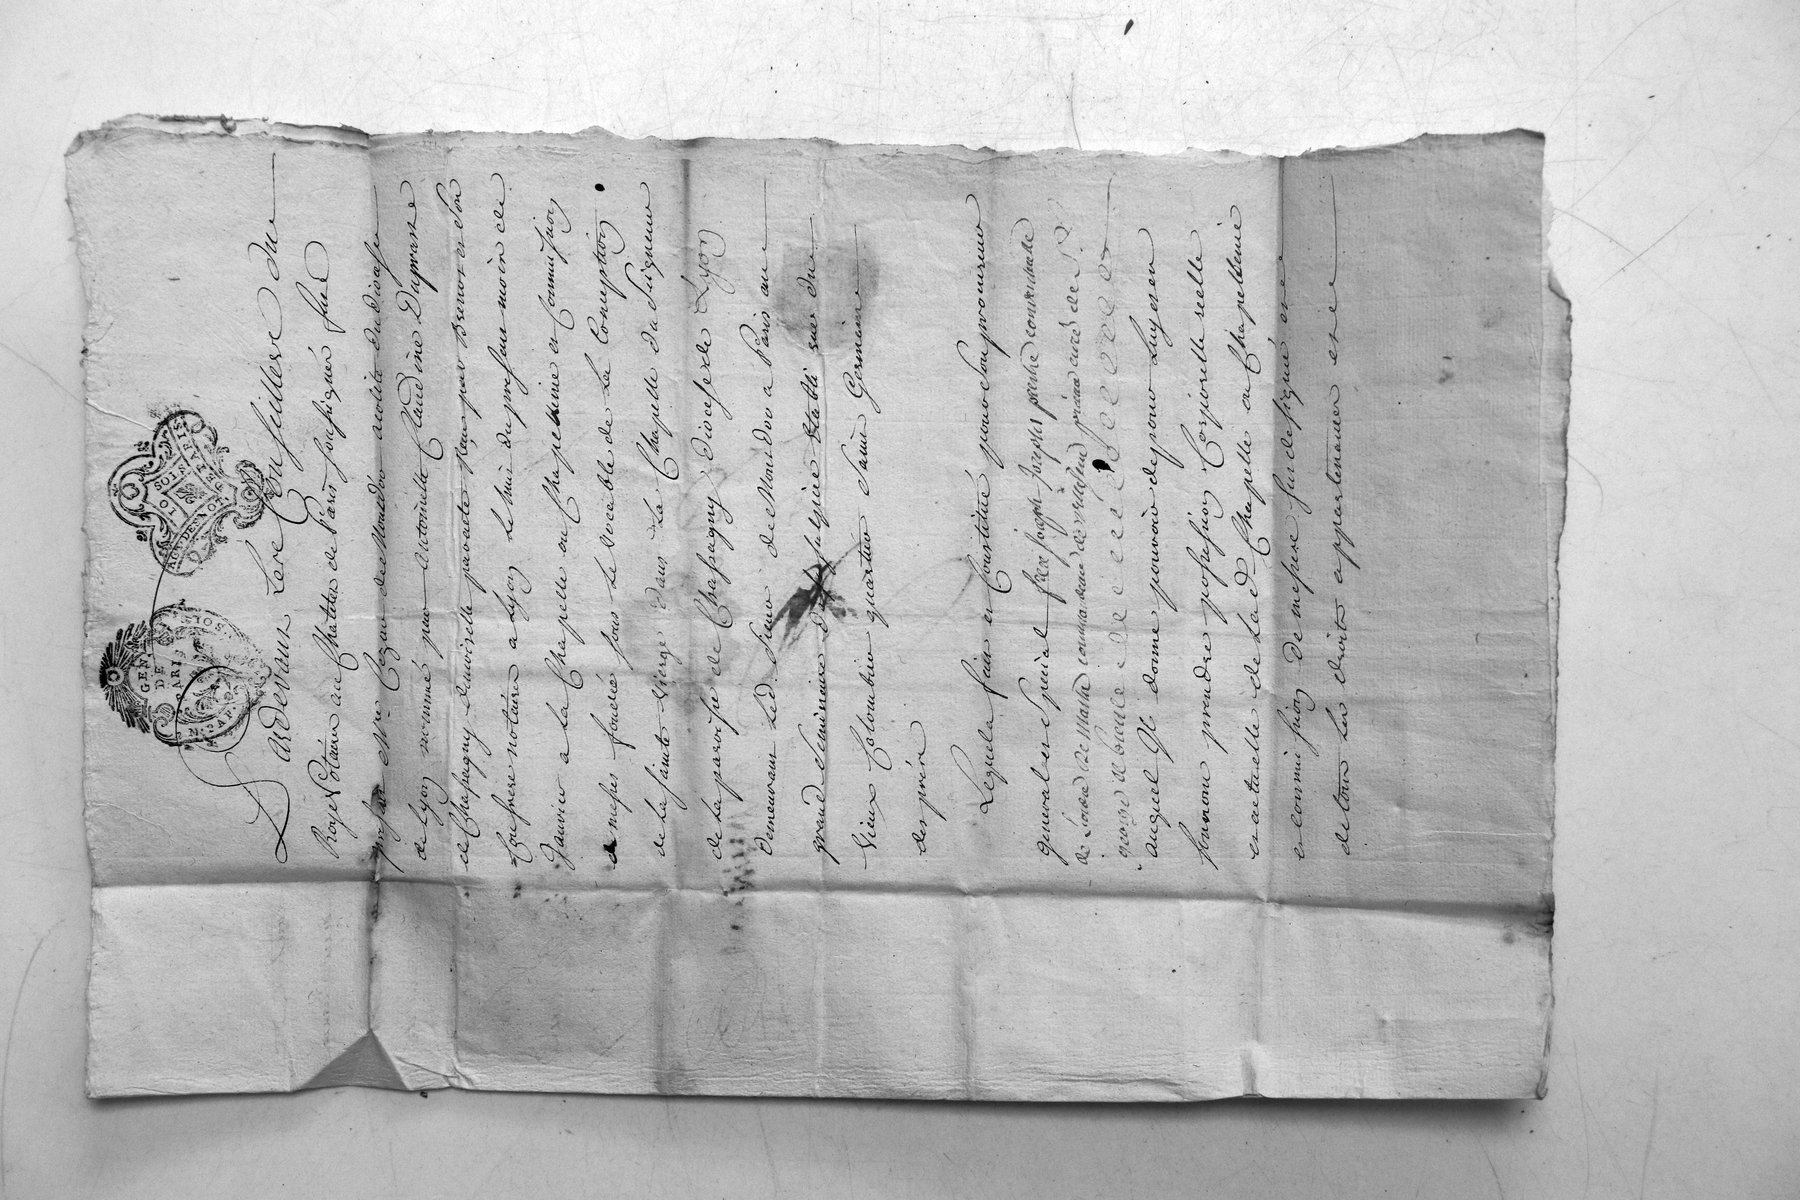 GEN. DE PARIS
DIX SOLS
ACT. DES NOT. DE PARIS
Pardevant Les Conseillers du
Roy Notaires au Chatelet de Paris soussignés fut
present Mre de Mondor acolite du diocese
de Lyon nommé par Antoinette Claudine Duprast
de Chassagny recu par Bremot et son
Confrere notaires a Lyon le huit du present mois de
Janvier a la Chapelle ou Chapellenie et Commission
de messes fondée sous le vocable de La Conception
de la sainte Vierge dans La Chapelle du Seigneur
de la paroisse de Chassagny Diocese de Lyon
demeurant led. Sieur de Mondor a Paris au
grand Seminaire de St Sulpice établi rue du
Vieux Colombier quartier Saint Germain
des prés
Lequel a fait et Constitué pour son procureur
general et special frere joseph
de Malthe prieur curé de St
george
auquel Il donne pouvoir de pour luy et en
son nom prendre possession Corporelle réelle
et actuelle de Lad. Chapelle ou Chapellenie
et commission de messes susdesignée et
de tous les droits appartenances et